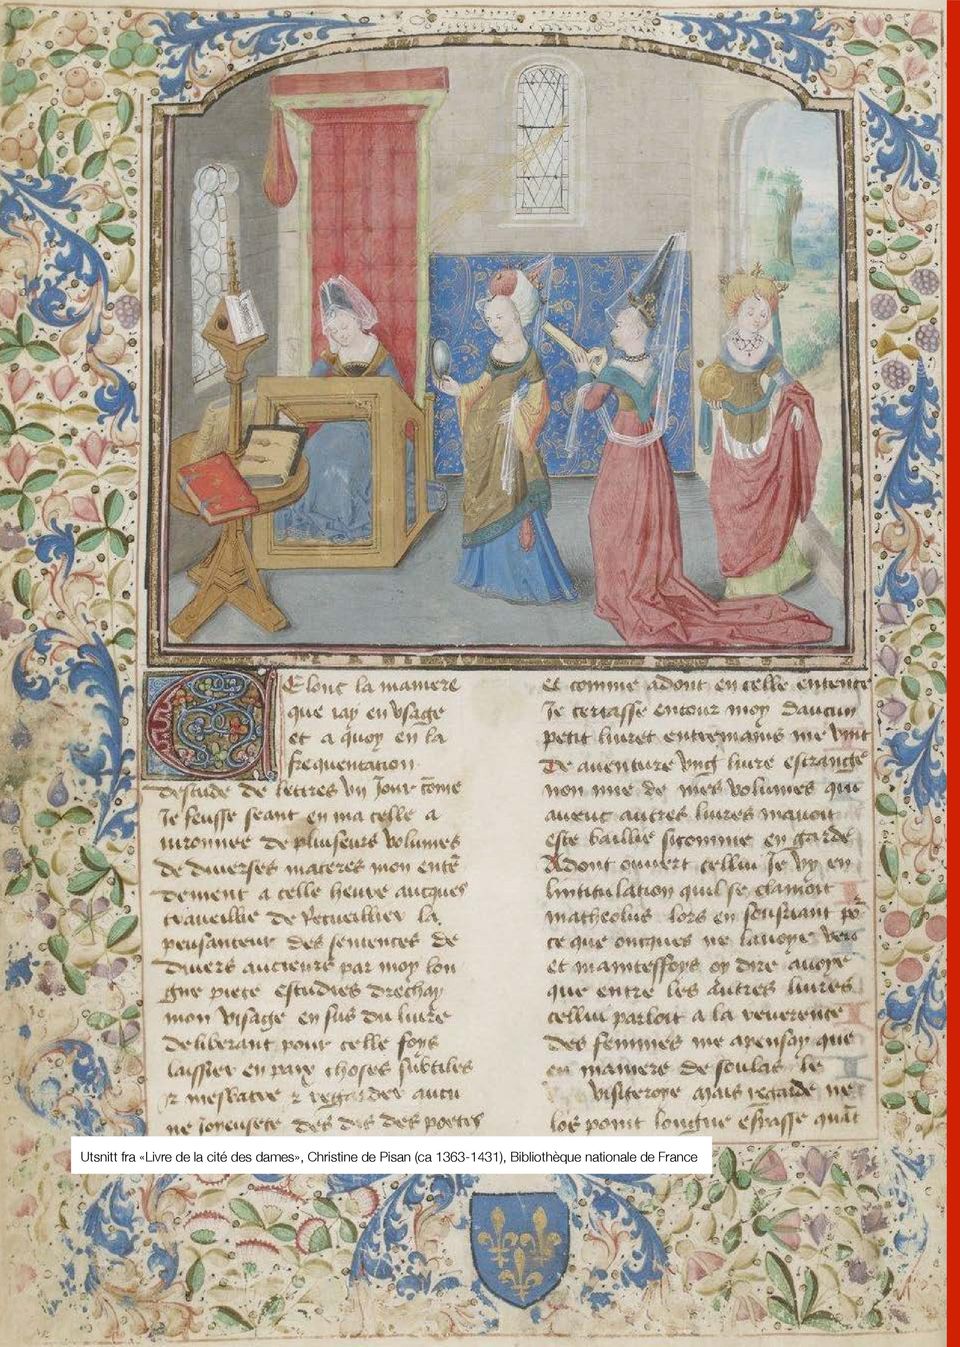 Elonc la maniere
que iay en vsage
et a quoy en la
frequentation
destude de lettres vn Jour cõme
Je feusse seant en ma celle a
uironnee de pluiseurs volumes
de diuerses materes mon entẽ
dement a celle heure aucques
traueillie de Recueillier la
pensanteur des sentences de
diuers aucteurs par moy lon
gue piece estudies drechay
mon visage en sus du liure
deliberant pour celle foys
laissier en paix choses subtiles
et mesbatre et regarder aucu
ne joyeusete des dis des poetes
et comme adont en celle entente
Je cercasse entour moy daucun
petit liuret entremains me vint
De auenture vng liure estrange
non mie de mes volumes que
auenc autres liures mauoit
este baillie sicomme en garde
Adont ouuert cellui Je vy en
lintitulation quil se clamoit
matheolus lors en sousriant por
ce que oncques ne lauoye veu
et maintesfoys oy dire auoye
que entre les autres liures
cellui parloit a la reuerence
des femmes me apensay que
en maniere de soulas le
visiteroye mais regarde ne
los point longue espasse quãt
Utsnitt fra «Livre de la cité des dames», Christine de Pisan (ca 1363-1431), Bibliothèque nationale de France